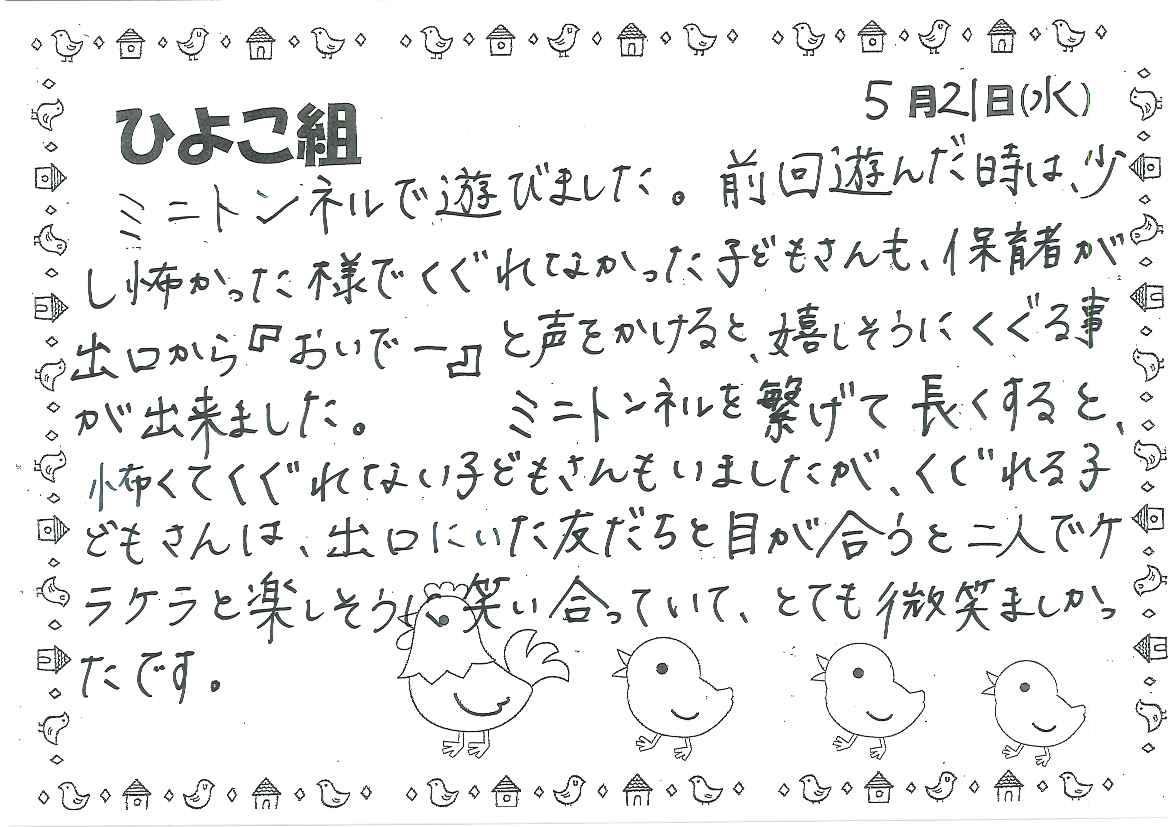 5月21日(水)
ひよこ組
ミニトンネルで遊びました。前回遊んだ時は、少
し怖かった様でくぐれてなかった子どもさんも、保育者が
出口から『おいでー』と声をかけると、嬉しそうにくぐる事
が出来ました。　ミニトンネルを繋げて長くすると、
怖くてくぐれてない子どもさんもいましたが、くぐれる子
どもさんは、出口にいた友だちと目が合うと二人でケ
ラケラと楽しそうに笑い合っていて、とても微笑ましかっ
たです。